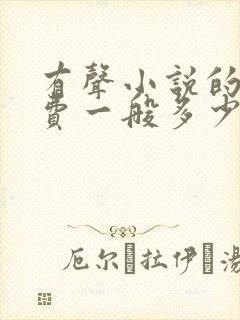 有聲小説的
費一般多少
厄尔 拉伊 湯